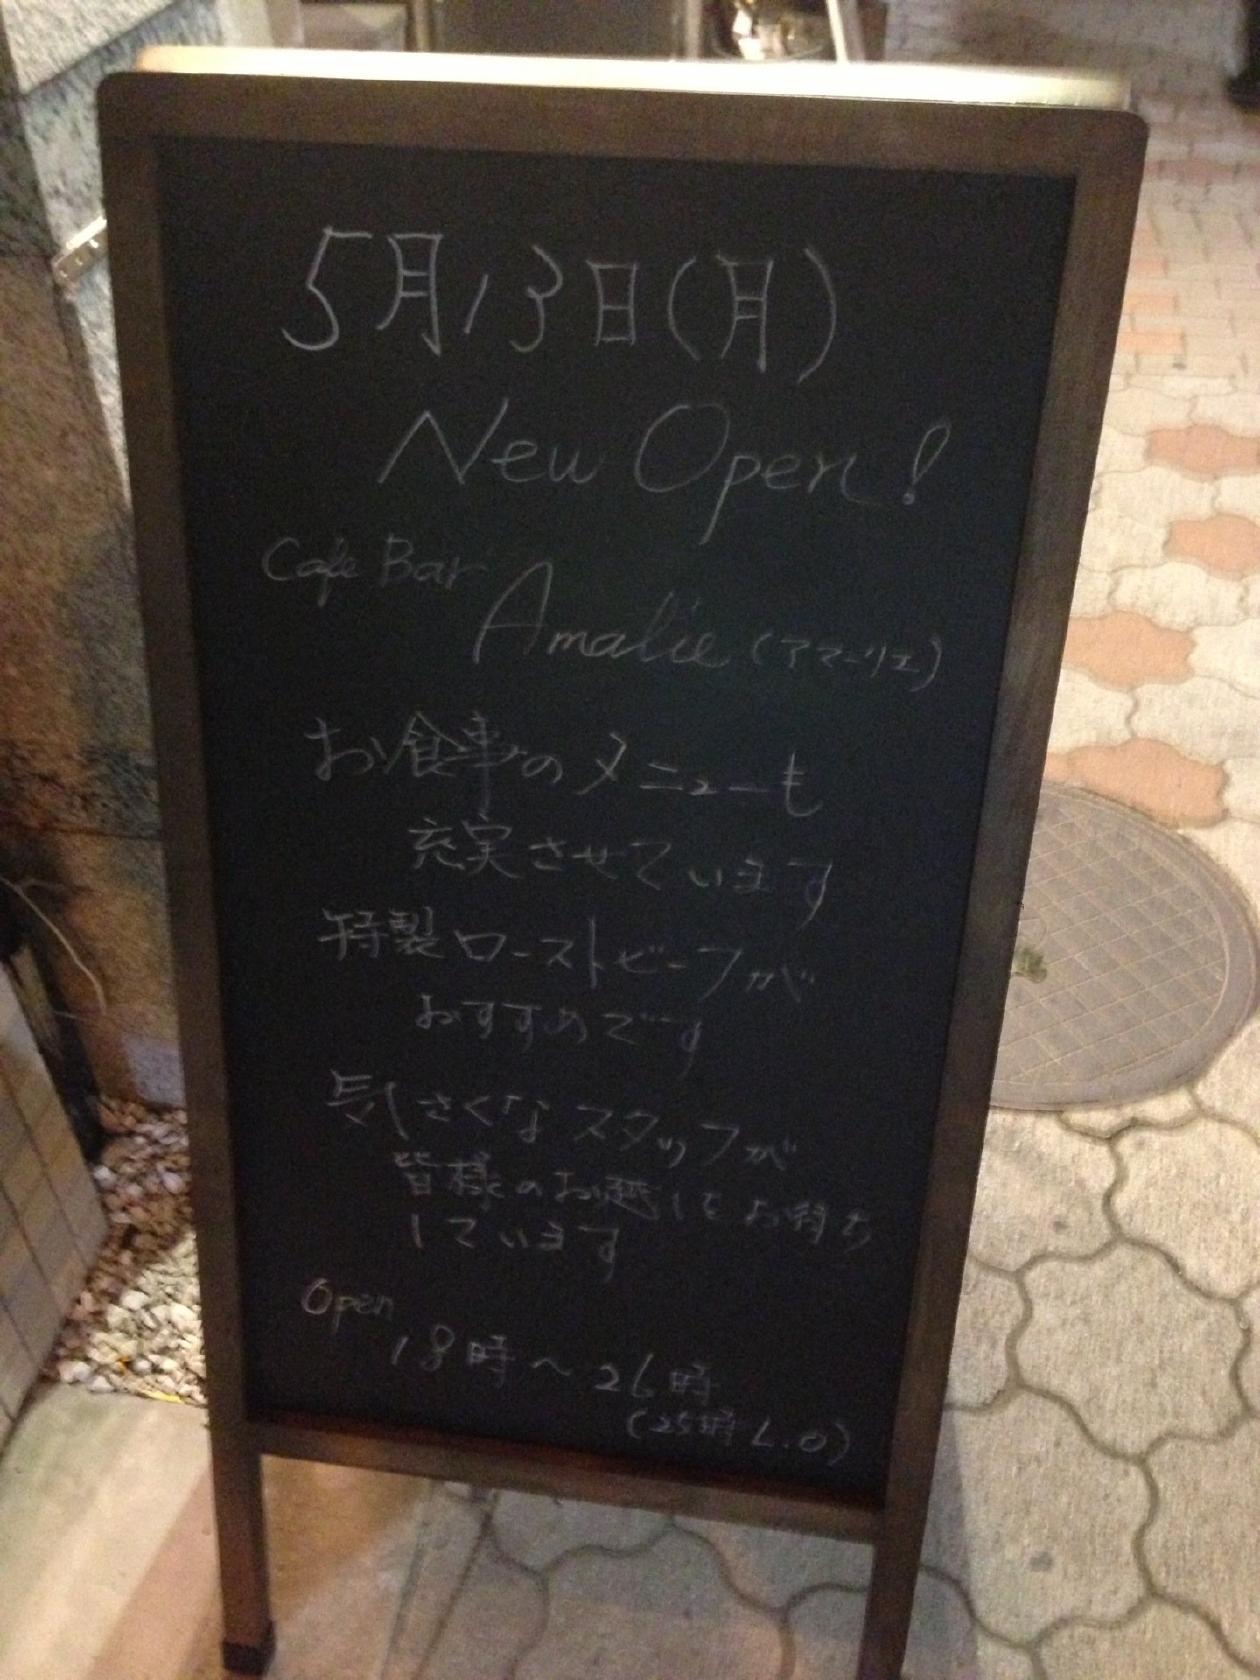 5月13日(月)
New Open!
Cafe Bar
Amalie (アマーリエ)
お食事のメニューも
充実させています
特製ローストビーフが
おすすめです
気さくなスタッフが
皆様のお越しをお待ち
しています
Open
18時〜26時
(25時L.O)